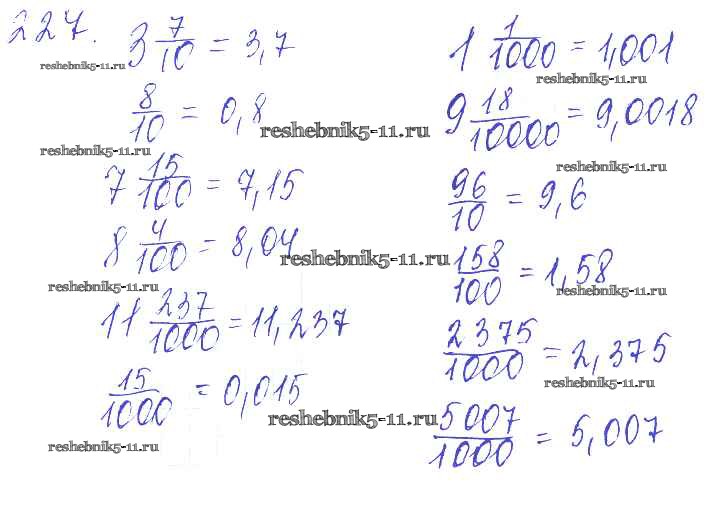 227. 3 7/10 = 3,7
reshebnik5-11.ru
8/10 = 0,8
reshebnik5-11.ru
reshebnik5-11.ru
7 15/100 = 7,15
8 4/100 = 8,04
reshebnik5-11.ru
reshebnik5-11.ru
11 237/1000 = 11,237
15/1000 = 0,015
reshebnik5-11.ru
reshebnik5-11.ru
1 1/1000 = 1,001
reshebnik5-11.ru
9 18/10000 = 9,0018
reshebnik5-11.ru
96/10 = 9,6
158/100 = 1,58
reshebnik5-11.ru
2375/1000 = 2,375
reshebnik5-11.ru
5007/1000 = 5,007